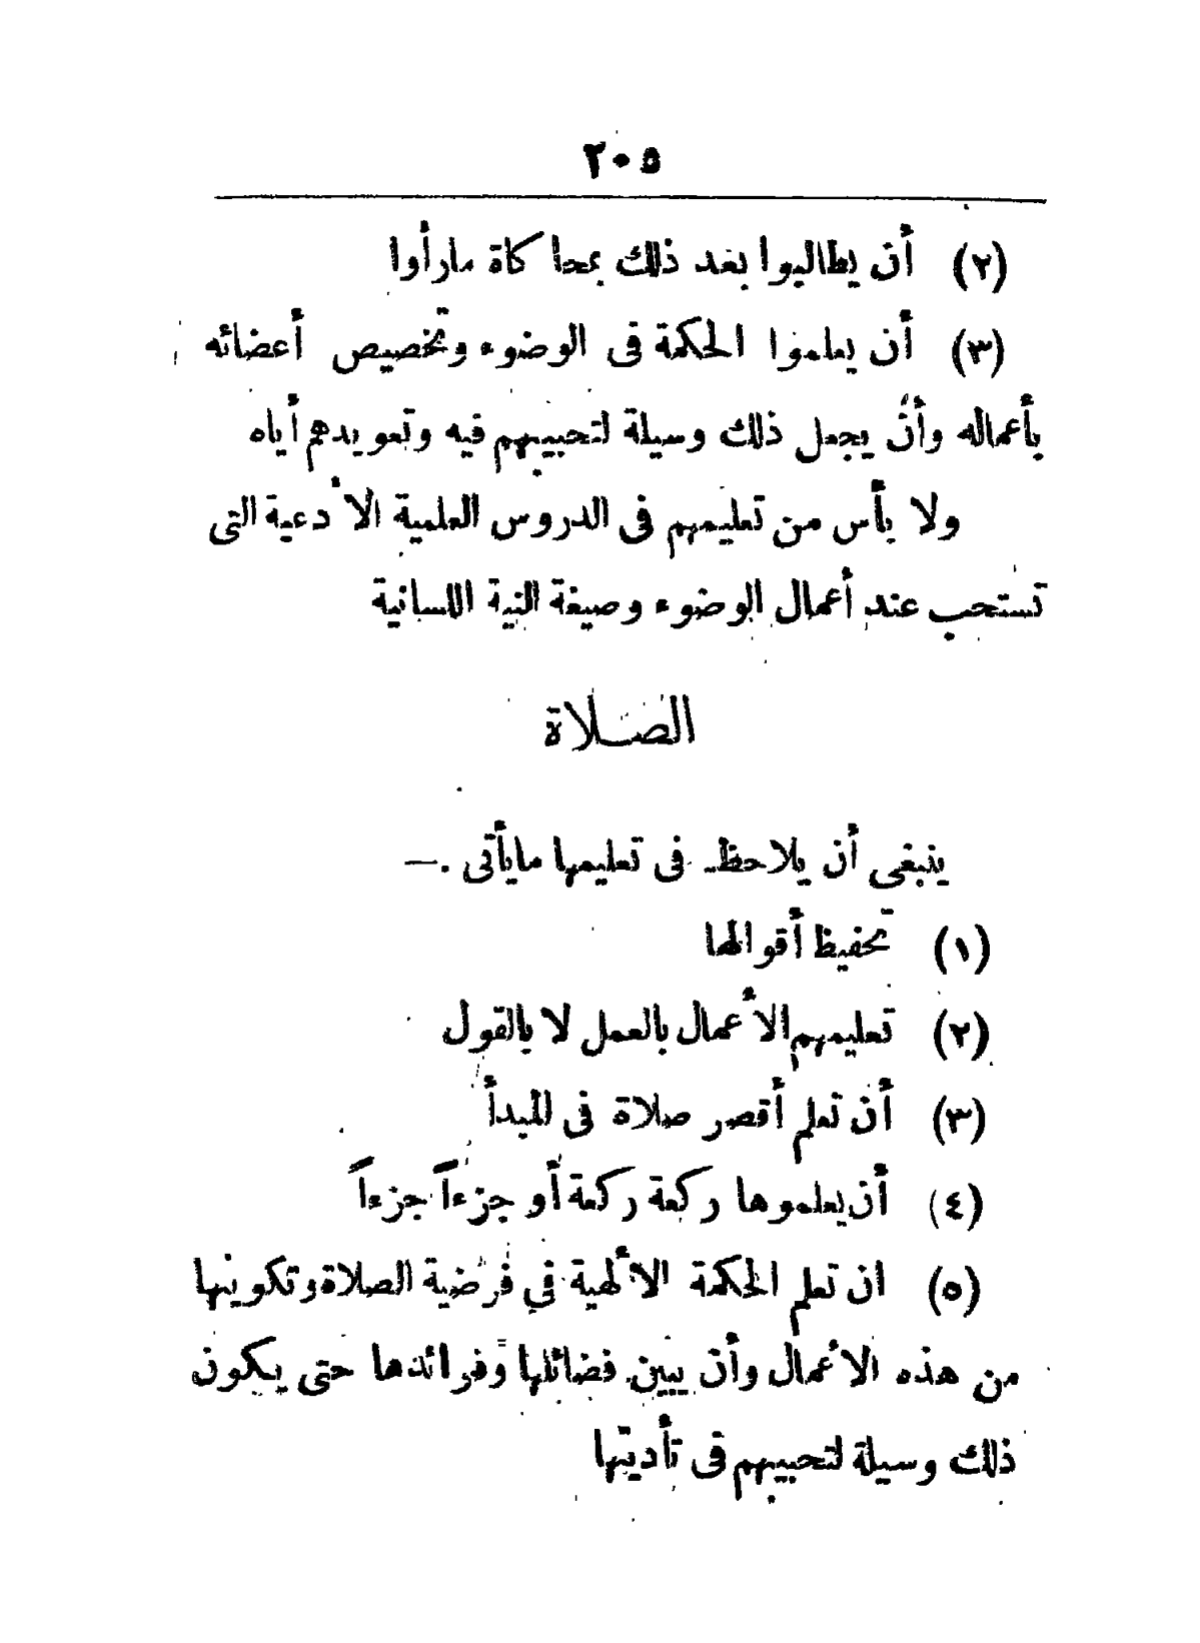 ٢٠٥
(٢) أن يطالبوا بعد ذلك بمحاكاة مارأوا
(٣) أن يعلموا الحكمة فى الوضوء وتخصيص أعضائه
بأعماله وأن يجعل ذلك وسيلة لتحبيبهم فيه وتعويدهم أياه
ولا بأس من تعليمهم فى الدروس العلمية الأدعية التى
تستحب عند أعمال الوضوء وصيغة النية اللسانية
الصلاة
ينبغى أن يلاحظ فى تعليمها مايأتى .—
(١) تحفيظ أقوالها
(٢) تعليمهم الأعمال بالعمل لا بالقول
(٣) أن تعلم أقصر صلاة فى المبدأ
(٤) أن يعلموها ركعة ركعة أو جزءاً جزءاً
(٥) ان تعلم الحكمة الألهية في فرضية الصلاة وتكوينها
من هذه الأعمال وأن يبين فضائلها وفوائدها حتى يكون
ذلك وسيلة لتحبيبهم فى تأديتها